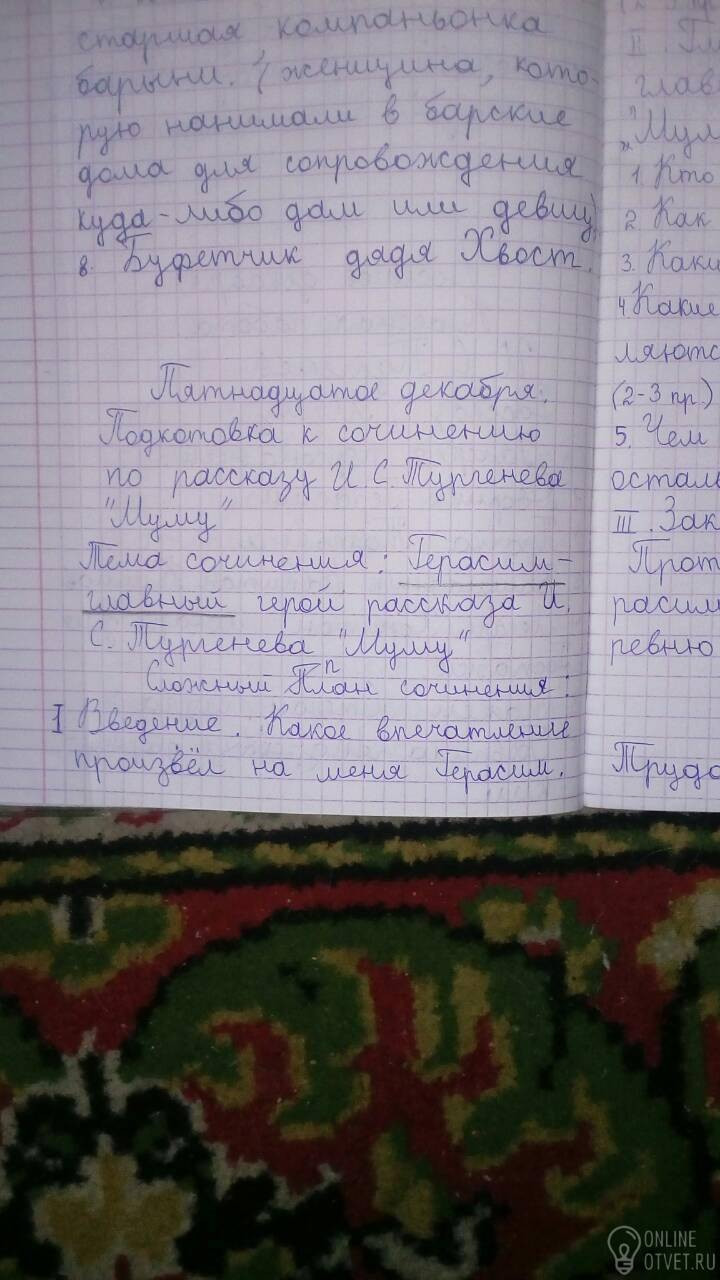 старшая компаньонка
барыни. (женщина, кото-
рую нанимали в барские
дома для сопровождения
куда-либо дам или девиц)
8. Буфетчик дядя Хвост.
Пятнадцатое декабря.
Подкотовка к сочинению
по рассказу И. С. Тургенева
"Муму"
Тема сочинения: Герасим-
главный герой рассказа И.
С. Тургенева "Муму"
Сложный План сочинения:
п
I Введение. Какое впечатление
произвёл на меня Герасим.
II Гл
глав
"Мул
1. Кто
2. Как
3. Каки
4. Какие
ляютс
(2-3 пр.)
5. Чем
осталь
III. Зак
Прот
расим
ревню
Трудо
ONLINE
OTVET.RU